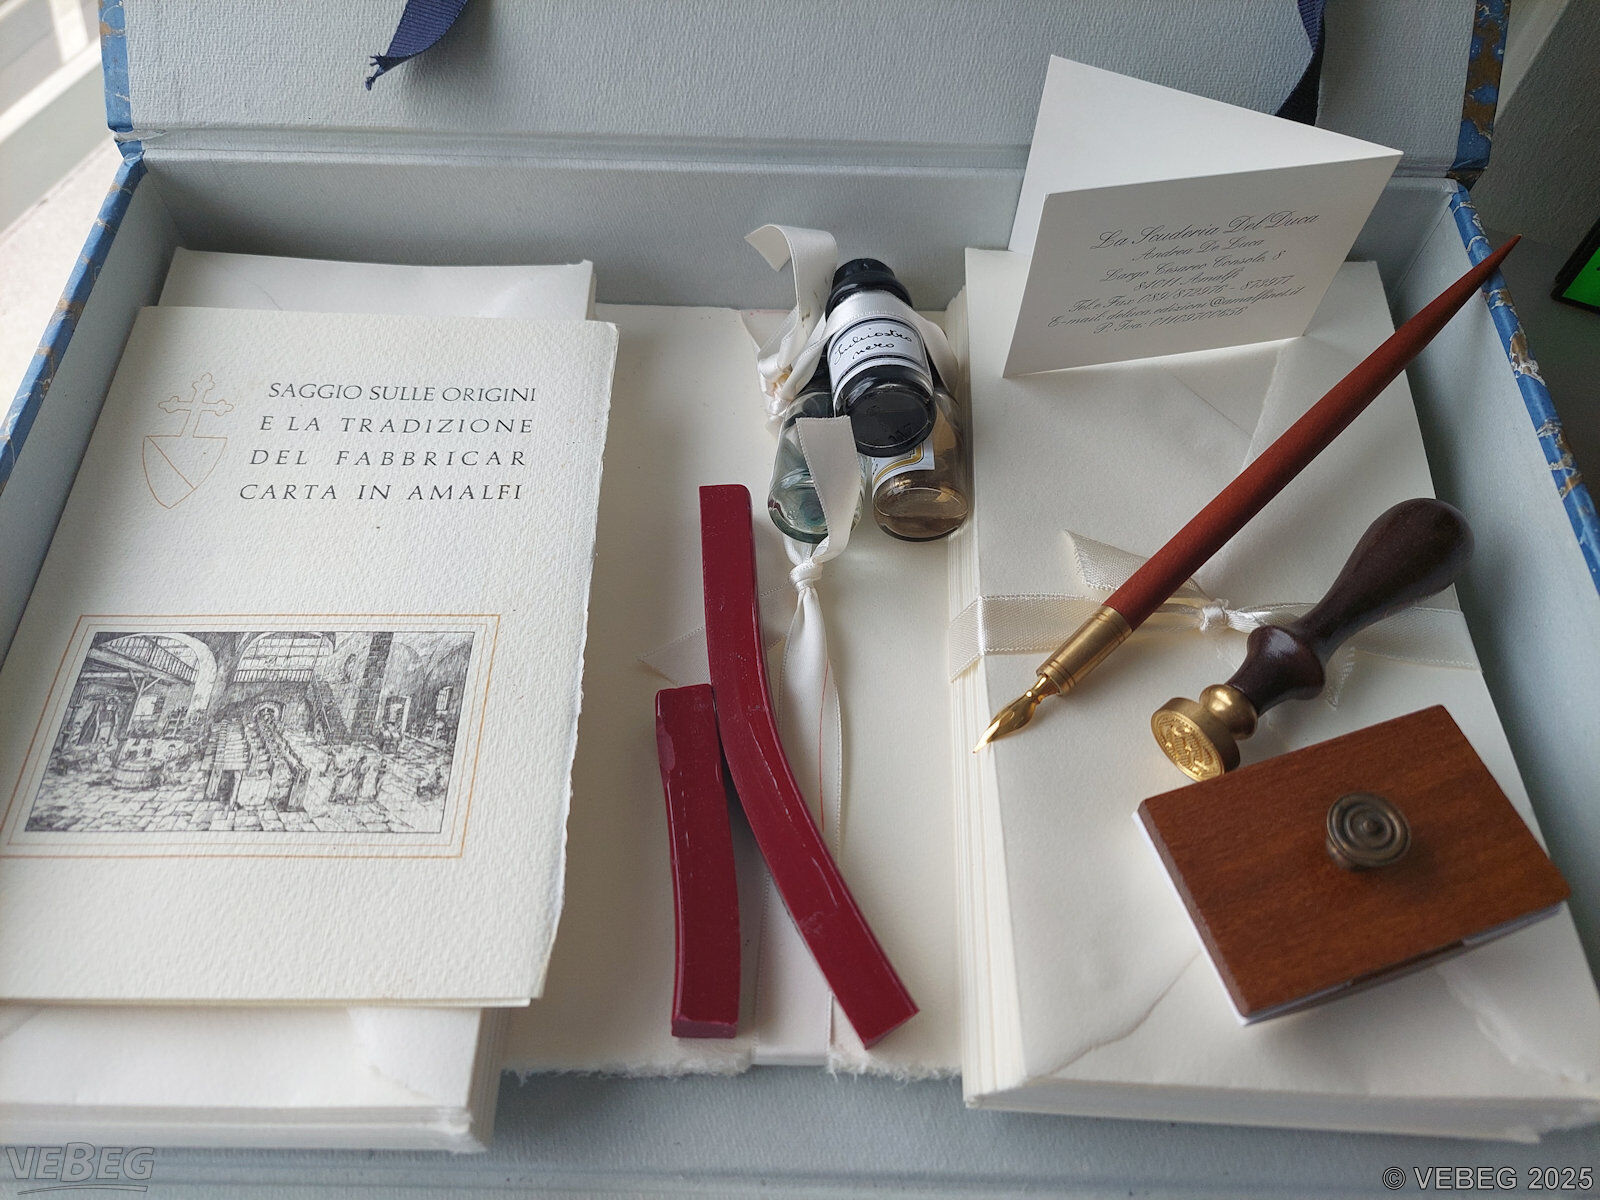 SAGGIO SULLE ORIGINI
E LA TRADIZIONE
DEL FABBRICAR
CARTA IN AMALFI
Inchiostro
nero
La Scuderia Del Duca
Andrea De Luca
Largo Cesareo Console, 8
84011 Amalfi
Tel. e Fax 089/872976 - 873977
E-mail: deluca.edizioni@amalfinet.it
P. Iva: 01109700656
VEBEG
© VEBEG 2025